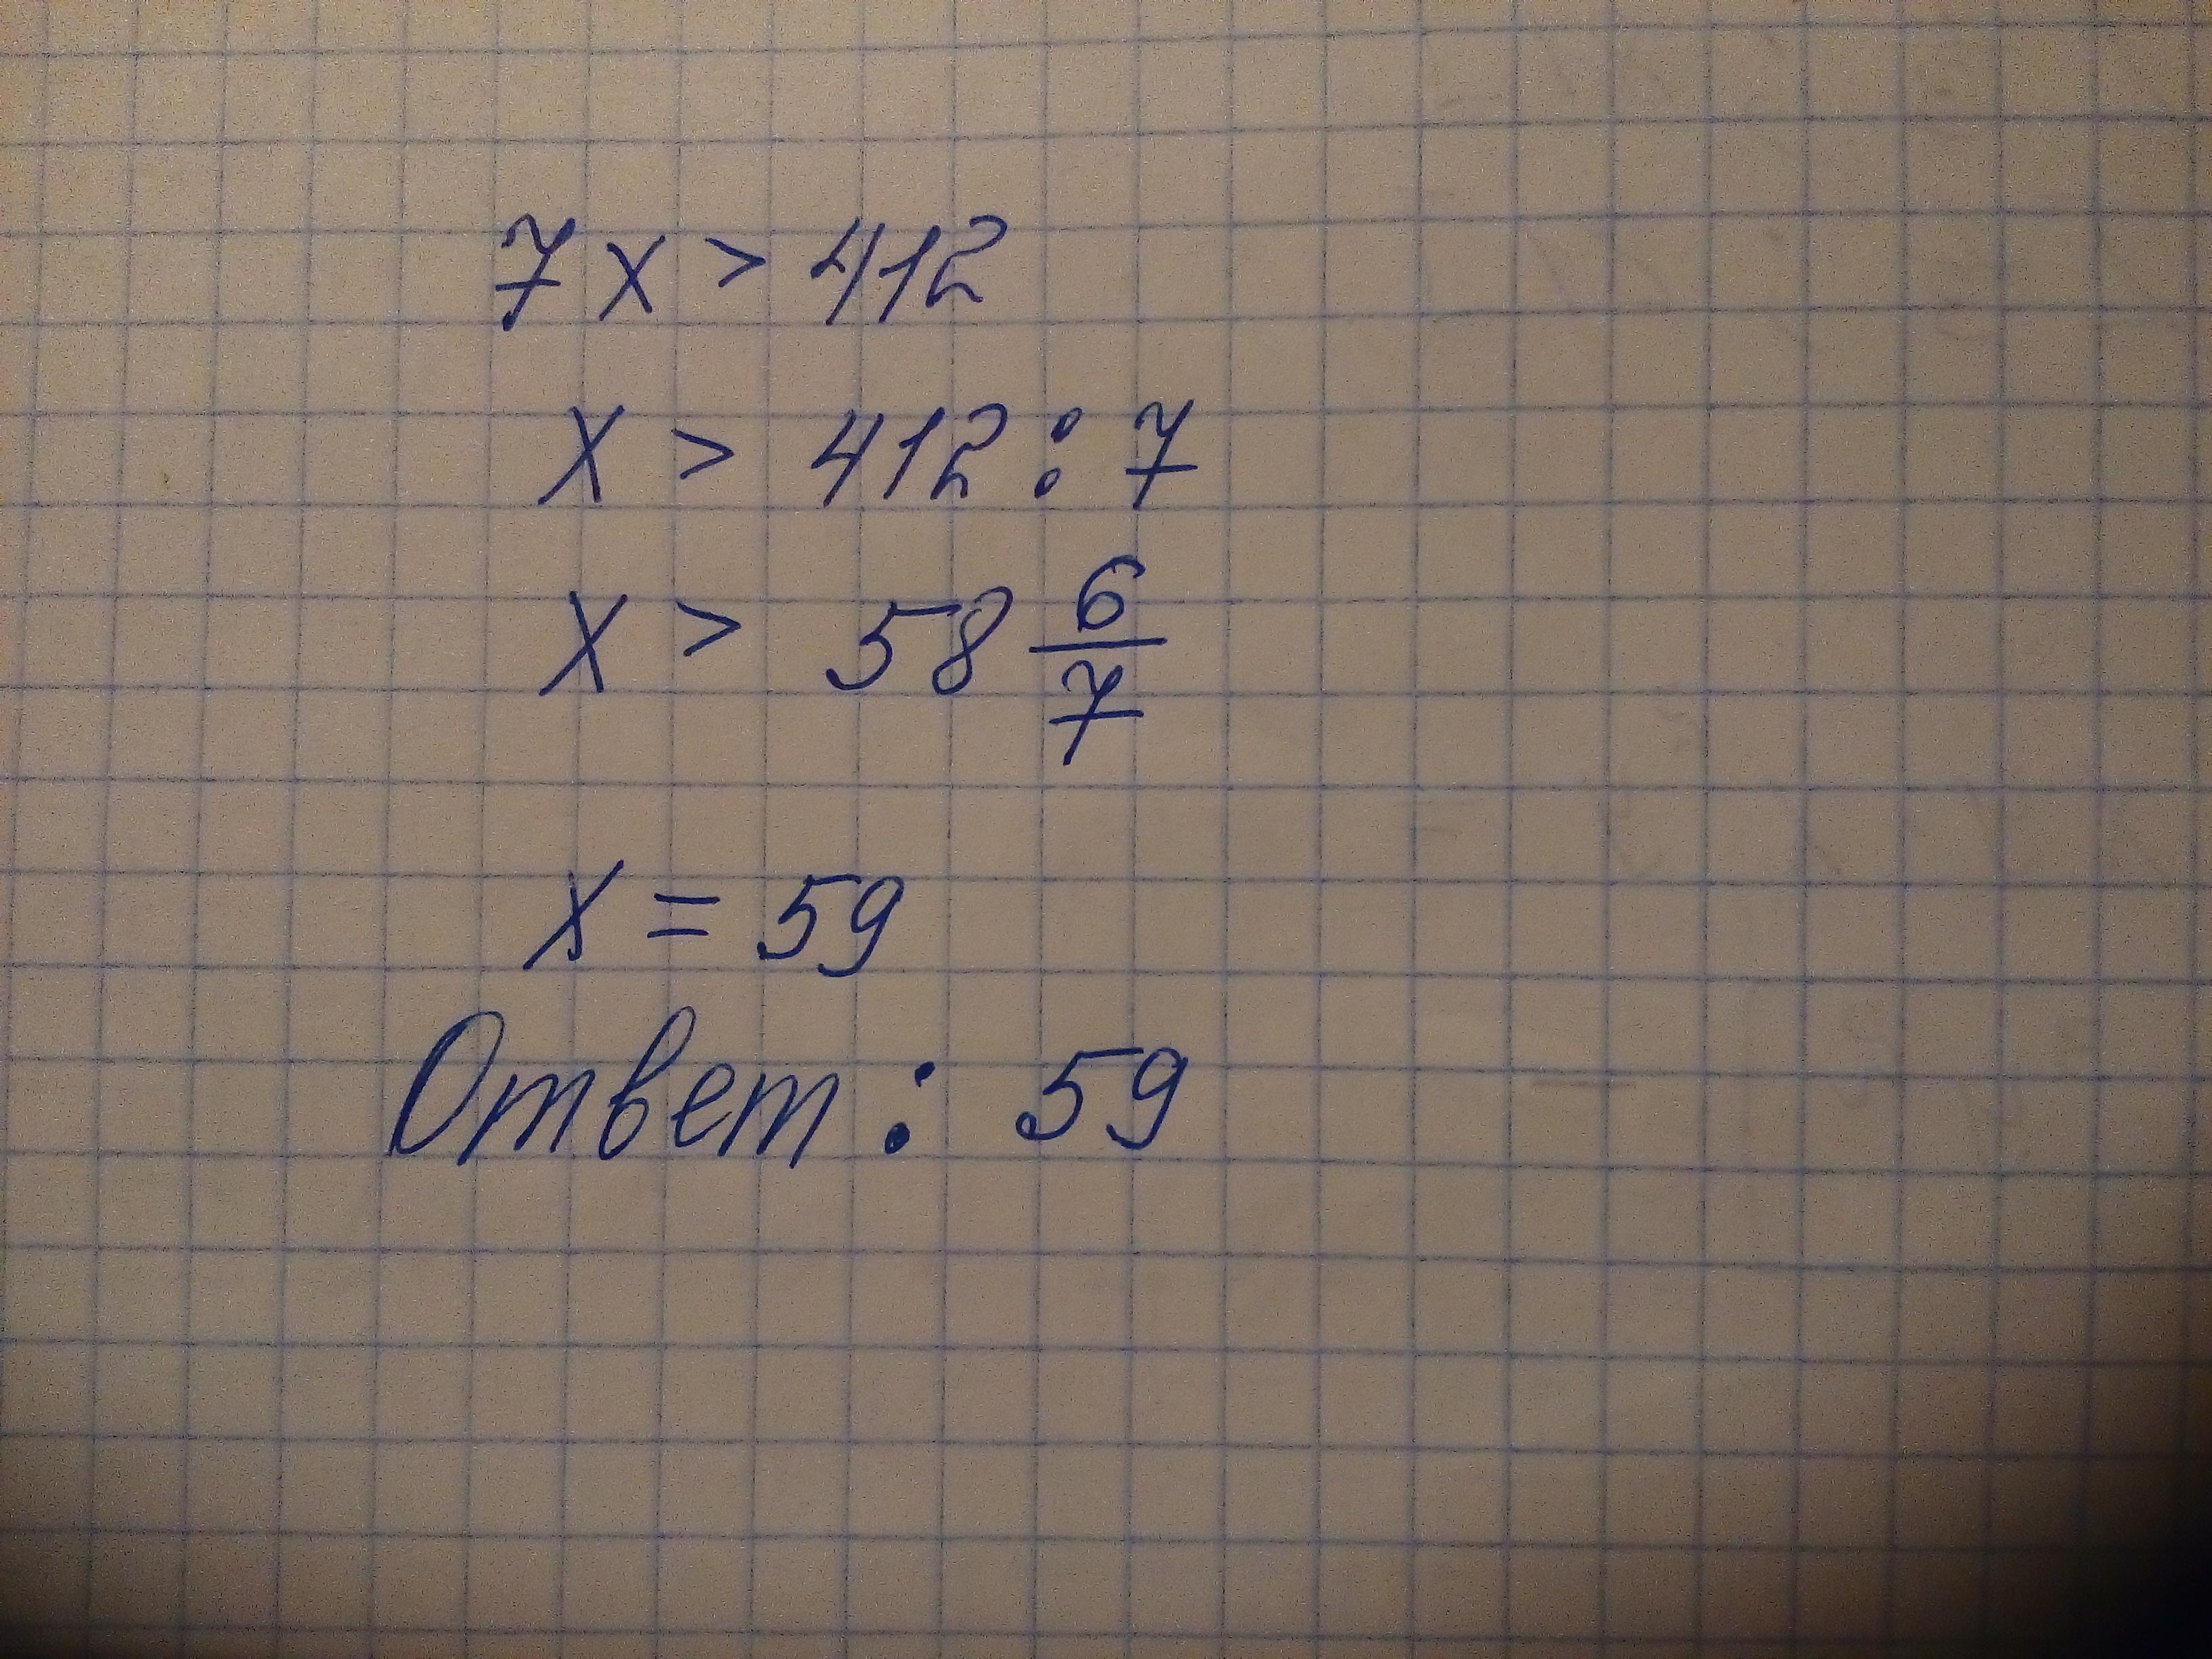 7x > 412
x > 412 : 7
x > 58 6/7
x = 59
Ответ : 59